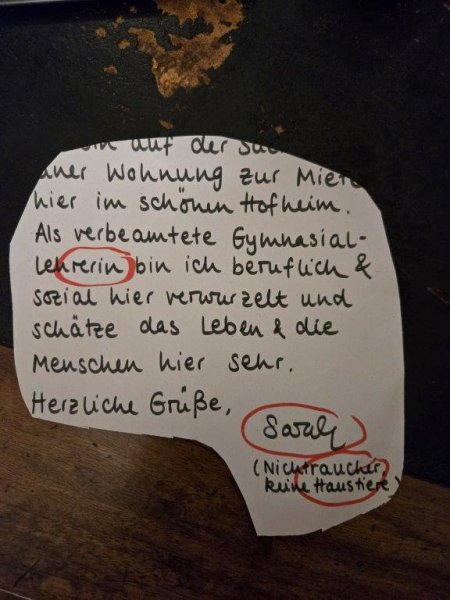 auf der
Wohnung zur Miete
hier im schönen Hofheim.
Als verbeamtete Gymnasial-
lehrerin bin ich beruflich &
sozial hier verwurzelt und
schätze das Leben & die
Menschen hier sehr.
Herzliche Grüße,
Sarah
(Nichtraucher,
keine Haustiere)